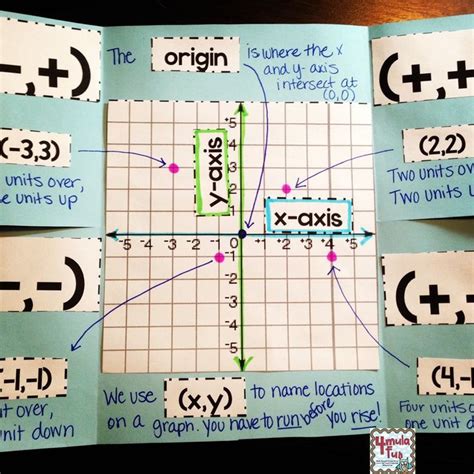 The origin is where the x
and y-axis
intersect at
(0,0)
-,+)
(+,+
(-3,3)
units over,
units up
(2,2)
Two units ov
Two units u
+5
+5
4
3
2
1
y-axis
x-axis
-5 -4 -3 -2 -1 0 1 2 3 4 +5
-1
-2
-3
-4
-5
-,-)
(+,
(-1,-1)
over,
unit down
(4,-1
Four units o
one unit d
We use (x,y) to name locations
on a graph. you have to run before
you rise!
4mula
fun